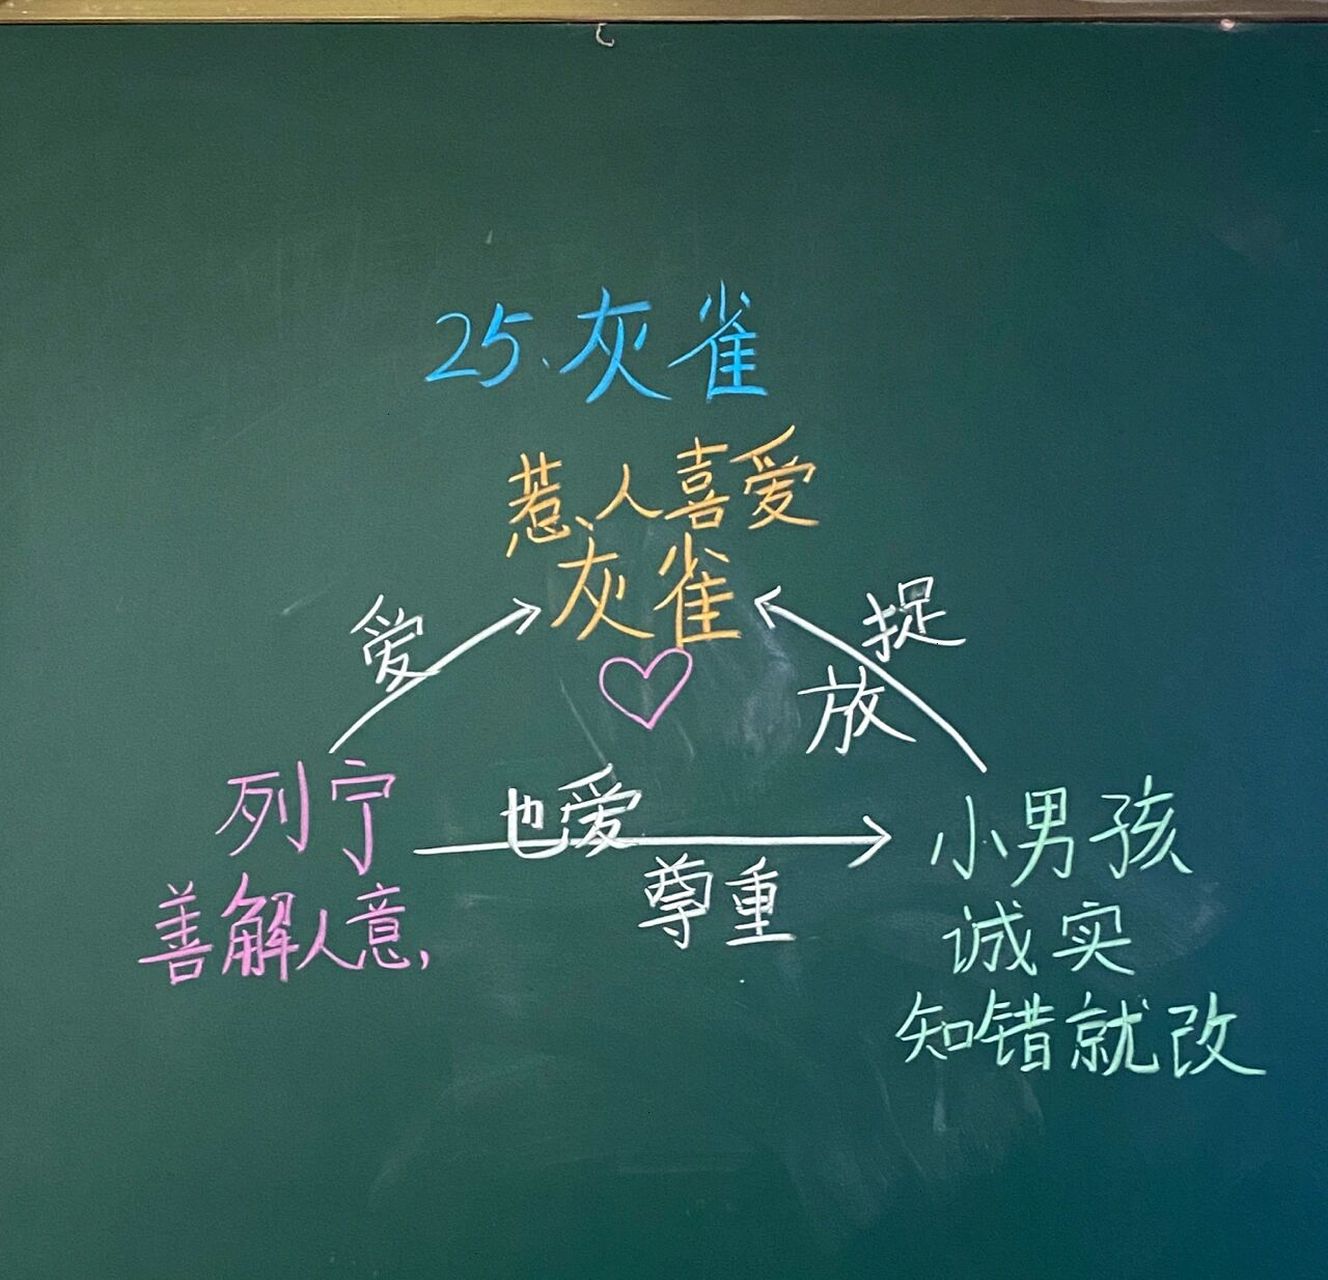 25、灰雀
惹人喜爱
灰雀
爱
捉
放
列宁
也爱
尊重
小男孩
善解人意,
诚实
知错就改